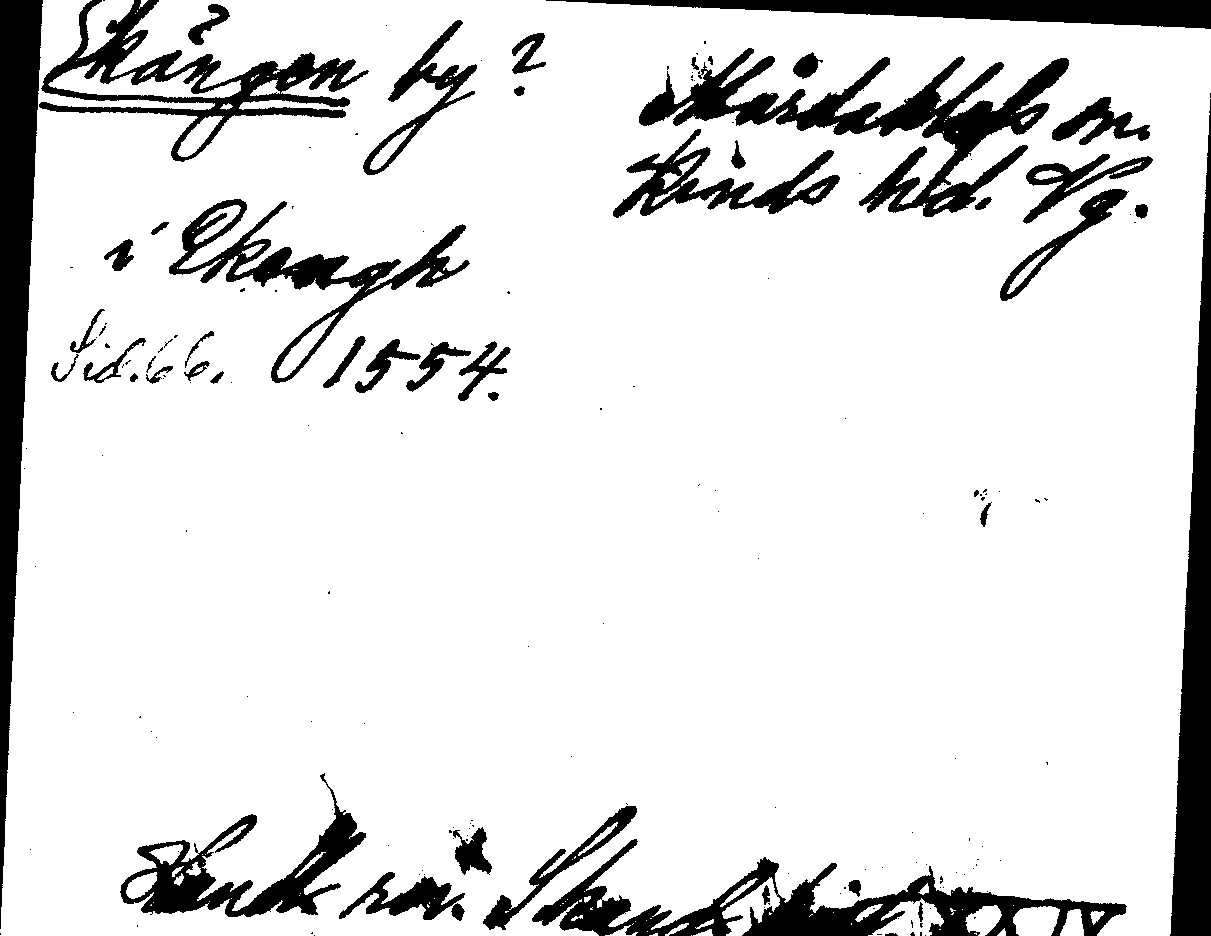 Ekängen by?
Mårdaklefs sn.
Kinds hd. Vg.
i Ekengh
Sid. 66. 1554.
Handl. rör. Skand. hist. XXIV